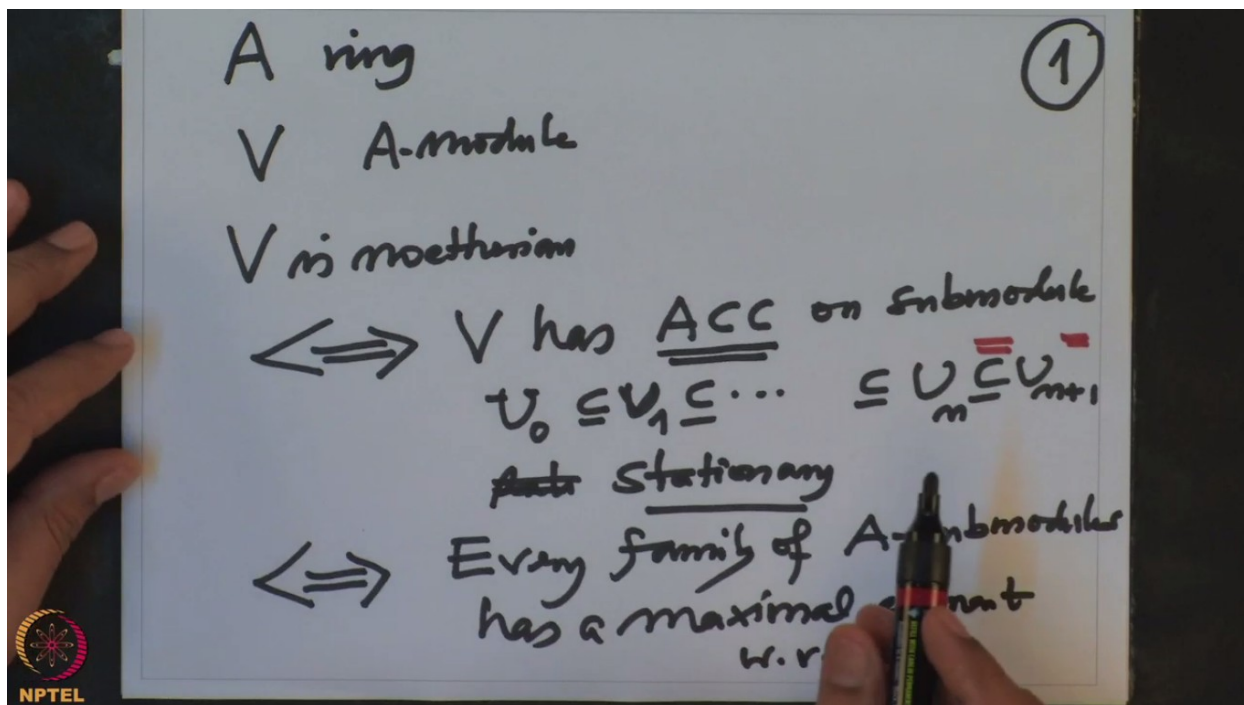 A ring
①
V A-module
V is noetherian
⇐⇒ V has ACC on submodule
U₀ ⊆ U₁ ⊆ ··· ⊆ Uₙ ⊆ Uₙ₊₁
Stationary
⇐⇒ Every family of A-submodules
has a maximal
w.r
NPTEL